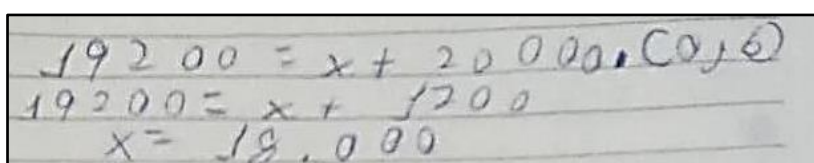 19200 = x + 20000.(0,6)
19200 = x + 1200
x = 18.000